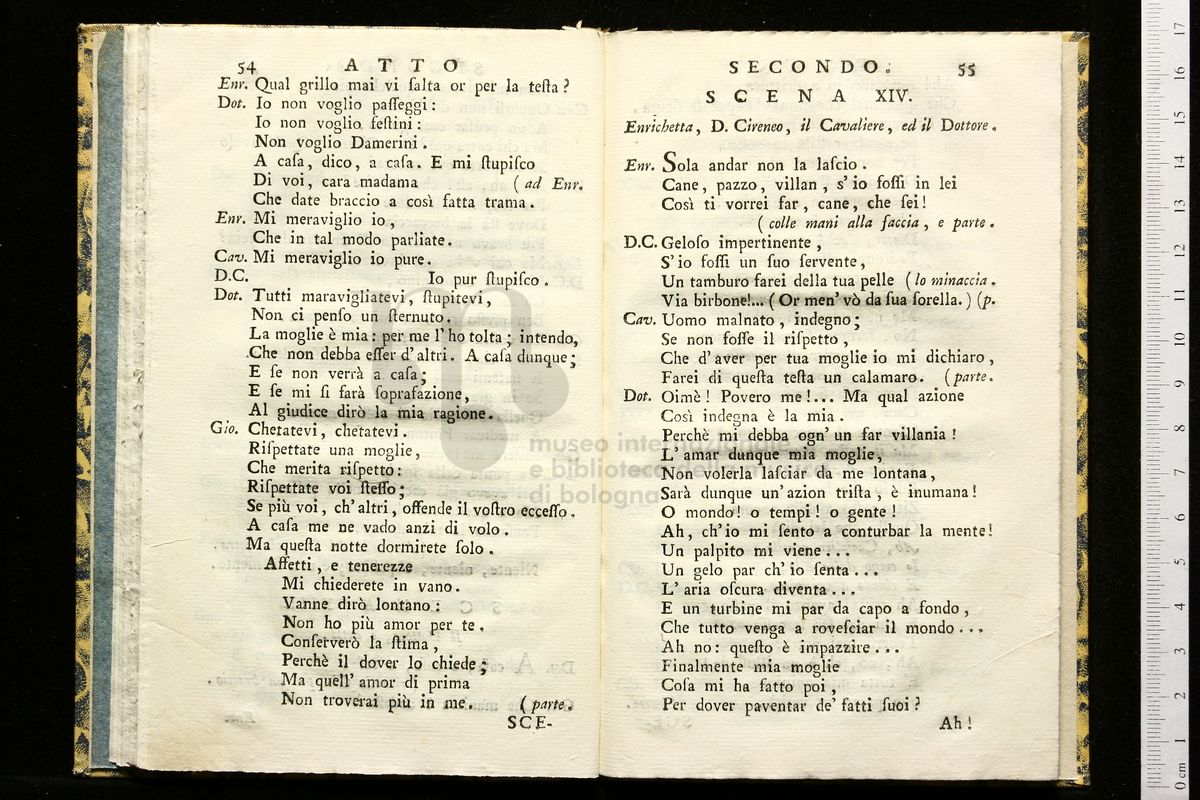 54 ATTO
Enr. Qual grillo mai vi ſalta or per la teſta?
Dot. Io non voglio paſſeggi:
Io non voglio feſtini:
Non voglio Damerini.
A caſa, dico, a caſa. E mi ſtupiſco
Di voi, cara madama (ad Enr.
Che date braccio a così fatta trama.
Enr. Mi meraviglio io,
Che in tal modo parliate.
Cav. Mi meraviglio io pure.
D.C. Io pur ſtupiſco.
Dot. Tutti maravigliatevi, ſtupitevi,
Non ci penſo un ſternuto.
La moglie è mia: per me l'ho tolta; intendo,
Che non debba eſſer d'altri. A caſa dunque;
E ſe non verrà a caſa;
E ſe mi ſi farà ſoprafazione,
Al giudice dirò la mia ragione.
Gio. Chetatevi, chetatevi.
Riſpettate una moglie,
Che merita riſpetto:
Riſpettate voi ſteſſo;
Se più voi, ch'altri, offende il voſtro ecceſſo.
A caſa me ne vado anzi di volo.
Ma queſta notte dormirete ſolo.
Affetti, e tenerezze
Mi chiederete in vano.
Vanne dirò lontano:
Non ho più amor per te.
Conſerverò la ſtima,
Perchè il dover lo chiede;
Ma quell'amor di prima
Non troverai più in me. (parte.
SCE-
SECONDO. 55
SCENA XIV.
Enrichetta, D. Cireneo, il Cavaliere, ed il Dottore.
Enr. Sola andar non la laſcio.
Cane, pazzo, villan, s'io foſſi in lei
Così ti vorrei far, cane, che ſei!
(colle mani alla faccia, e parte.
D.C. Geloſo impertinente,
S'io foſſi un ſuo ſervente,
Un tamburo farei della tua pelle (lo minaccia.
Via birbone!... (Or men' vò da ſua ſorella.) (p.
Cav. Uomo malnato, indegno;
Se non foſſe il riſpetto,
Che d'aver per tua moglie io mi dichiaro,
Farei di queſta teſta un calamaro. (parte.
Dot. Oimè! Povero me!... Ma qual azione
Così indegna è la mia.
Perchè mi debba ogn'un far villania!
L'amar dunque mia moglie,
Non volerla laſciar da me lontana,
Sarà dunque un'azion triſta, è inumana!
O mondo! o tempi! o gente!
Ah, ch'io mi ſento a conturbar la mente!
Un palpito mi viene...
Un gelo par ch'io ſenta...
L'aria oſcura diventa...
E un turbine mi par da capo a fondo,
Che tutto venga a roveſciar il mondo...
Ah no: queſto è impazzire...
Finalmente mia moglie
Coſa mi ha fatto poi,
Per dover paventar de' fatti ſuoi?
Ah!
museo internazionale
e biblioteca della musica
di bologna
0 cm 1 2 3 4 5 6 7 8 9 10 11 12 13 14 15 16 17